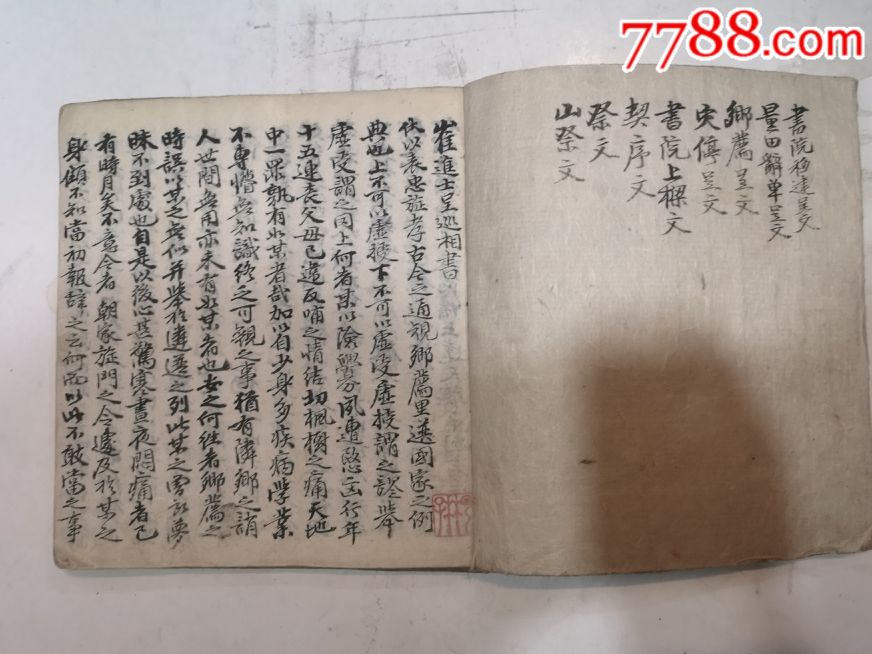 7788.com
書院移建呈文
量田辭单呈文
鄉薦呈文
史傎呈文
書院上樑文
契序文
祭文
山祭文
崔進士呈巡相書
伏以表忠旌孝古今之通規鄉薦里選國家之例
典也上不可以虛授下不可以虛受虛授謂之謬舉
虛受謂之罔上何者某以險釁夙遭愍凶行年
十五連喪父母已違反哺之情結切楓樹之痛天地
中一罪孰有如某者哉加以自少身多疾病學業
不專懵無知識終乏可觀之事猶有隣鄉之誚
人世間無用亦未有如某者也女之何徃者鄉薦之
時誤以某之無似并舉於遴選之列此某之曾所夢
昧不到處也自是以後心甚驚寒晝夜悶痛者已
有時月矣不意今者 朝家旌門之令遽及於某之
身顧不知當初報辭之云何而以此不敢當之事